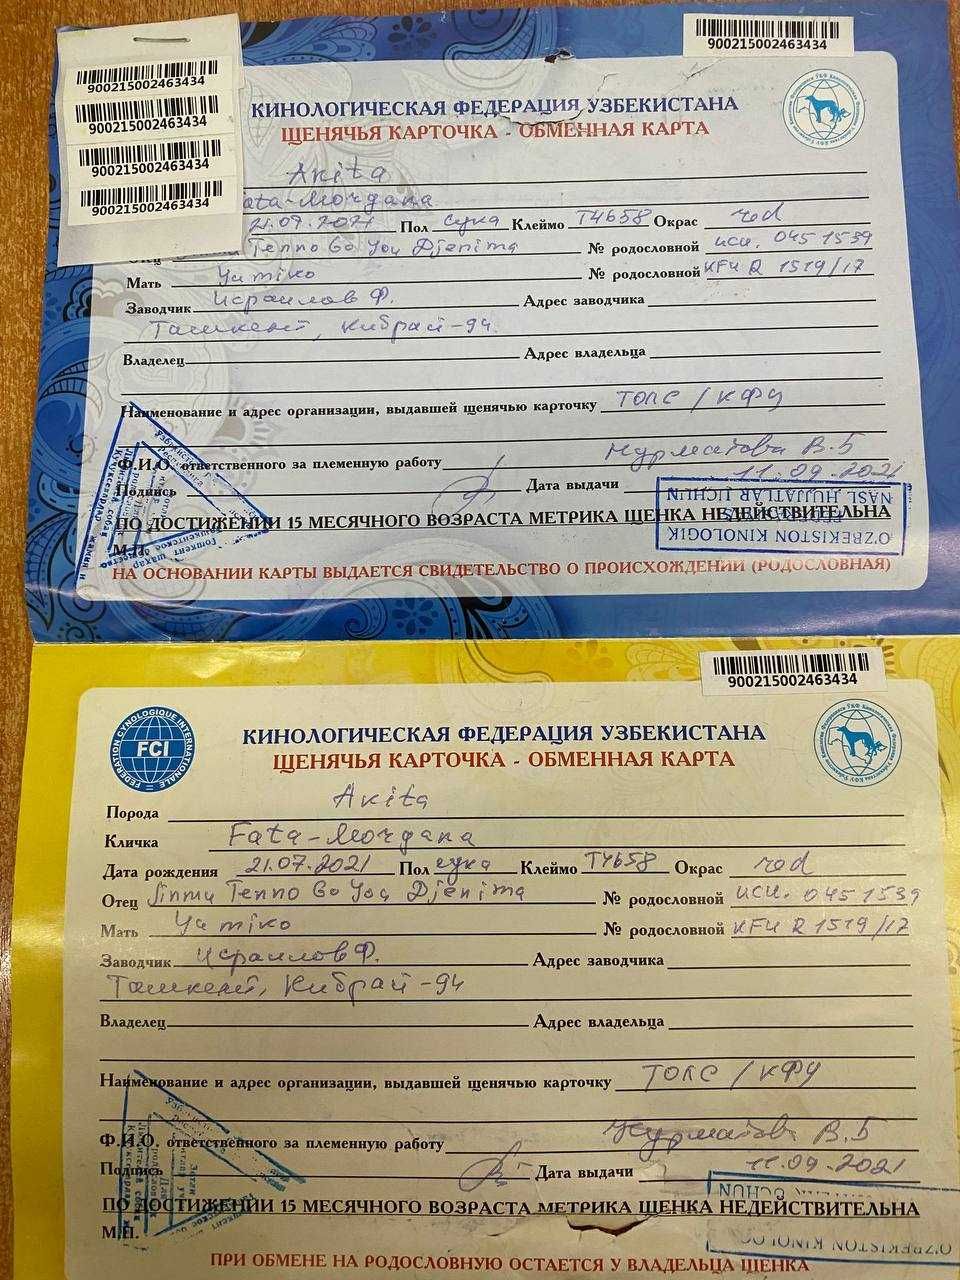 900215002463434
900215002463434
900215002463434
900215002463434
900215002463434
КИНОЛОГИЧЕСКАЯ ФЕДЕРАЦИЯ УЗБЕКИСТАНА
ЩЕНЯЧЬЯ КАРТОЧКА - ОБМЕННАЯ КАРТА
Akita
ata-Morgana
21.07.2021 Пол сука Клеймо T4658 Окрас red
Теппо Go You Djenima № родословной исп. 0451539
Мать Уатiко № родословной KFU R 1519/17
Заводчик Исраилов Ф. Адрес заводчика
Ташкент, Кибрай-94
Владелец Адрес владельца
Наименование и адрес организации, выдавшей щенячью карточку ТОЛС / КФУ
Ф.И.О. ответственного за племенную работу Нурматова В.Б
Подпись Дата выдачи 11.09.2021
O'ZBEKISTON KINOLOGIK
NASL HUJJATLAR UCHUN
ПО ДОСТИЖЕНИИ 15 МЕСЯЧНОГО ВОЗРАСТА МЕТРИКА ЩЕНКА НЕДЕЙСТВИТЕЛЬНА
М.П.
НА ОСНОВАНИИ КАРТЫ ВЫДАЕТСЯ СВИДЕТЕЛЬСТВО О ПРОИСХОЖДЕНИИ (РОДОСЛОВНАЯ)
900215002463434
FEDERATION CYNOLOGIQUE INTERNATIONALE
FCI
КИНОЛОГИЧЕСКАЯ ФЕДЕРАЦИЯ УЗБЕКИСТАНА
ЩЕНЯЧЬЯ КАРТОЧКА - ОБМЕННАЯ КАРТА
Порода Akita
Кличка Fata-Morgana
Дата рождения 21.07.2021 Пол сука Клеймо T4658 Окрас red
Отец Jinmu Теппо Go You Djenima № родословной исп. 0451539
Мать Уатiко № родословной KFU R 1519/17
Заводчик Исраилов Ф. Адрес заводчика
Ташкент, Кибрай-94
Владелец Адрес владельца
Наименование и адрес организации, выдавшей щенячью карточку ТОЛС / КФУ
Ф.И.О. ответственного за племенную работу Нурматова В.Б
Подпись Дата выдачи 11.09.2021
UCHUN
ПО ДОСТИЖЕНИИ 15 МЕСЯЧНОГО ВОЗРАСТА МЕТРИКА ЩЕНКА НЕДЕЙСТВИТЕЛЬНА
М.П.
O'ZBEKISTON KINOLOG
ПРИ ОБМЕНЕ НА РОДОСЛОВНУЮ ОСТАЕТСЯ У ВЛАДЕЛЬЦА ЩЕНКА